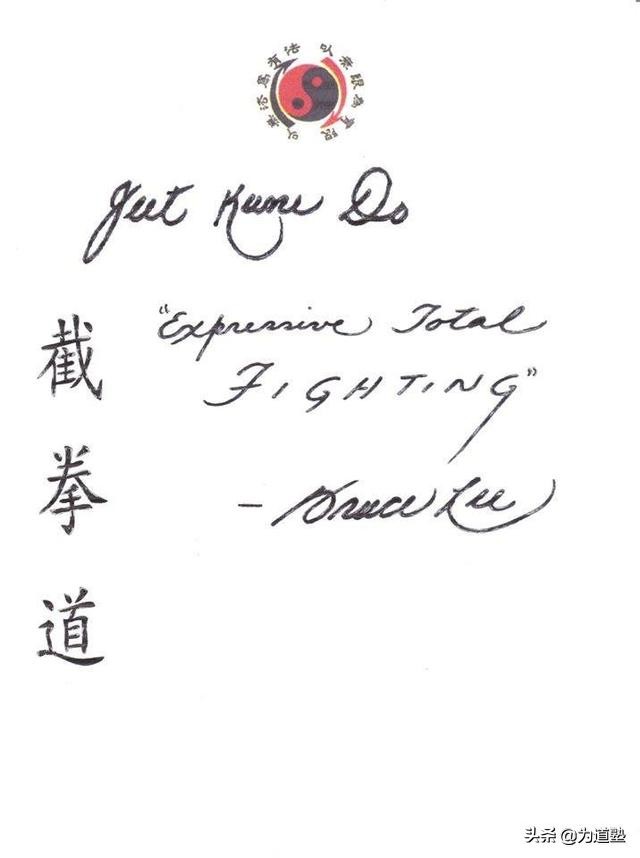 以無法為有法 以無限為有限
Jeet Kune Do
"Expressive Total
FIGHTING"
- Bruce Lee
截
拳
道
头条 @为道塾